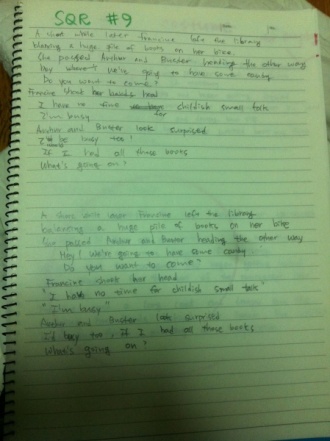 SQR #9
A short while later Francine left the library
blancing a huge pile of books on her bike
She passed Archer and Buster heading the other way
Hey we're going to have some candy
Do you want to come?
Francine shook her head
I have no time childish small talk
I'm busy
Archer and Buster look surprised
I be busy too
If I had all those books
What's going on?
A short while later Francine left the library
balancing a huge pile of books on her bike
She passed Archer and Buster heading the other way
Hey! We're going to have some candy
Do you want to come"
Francine shook her head
"I have no time for childish small talk"
"I'm busy"
Archer and Buster look surprised
I'd busy too, If I had all those books
What's going on?